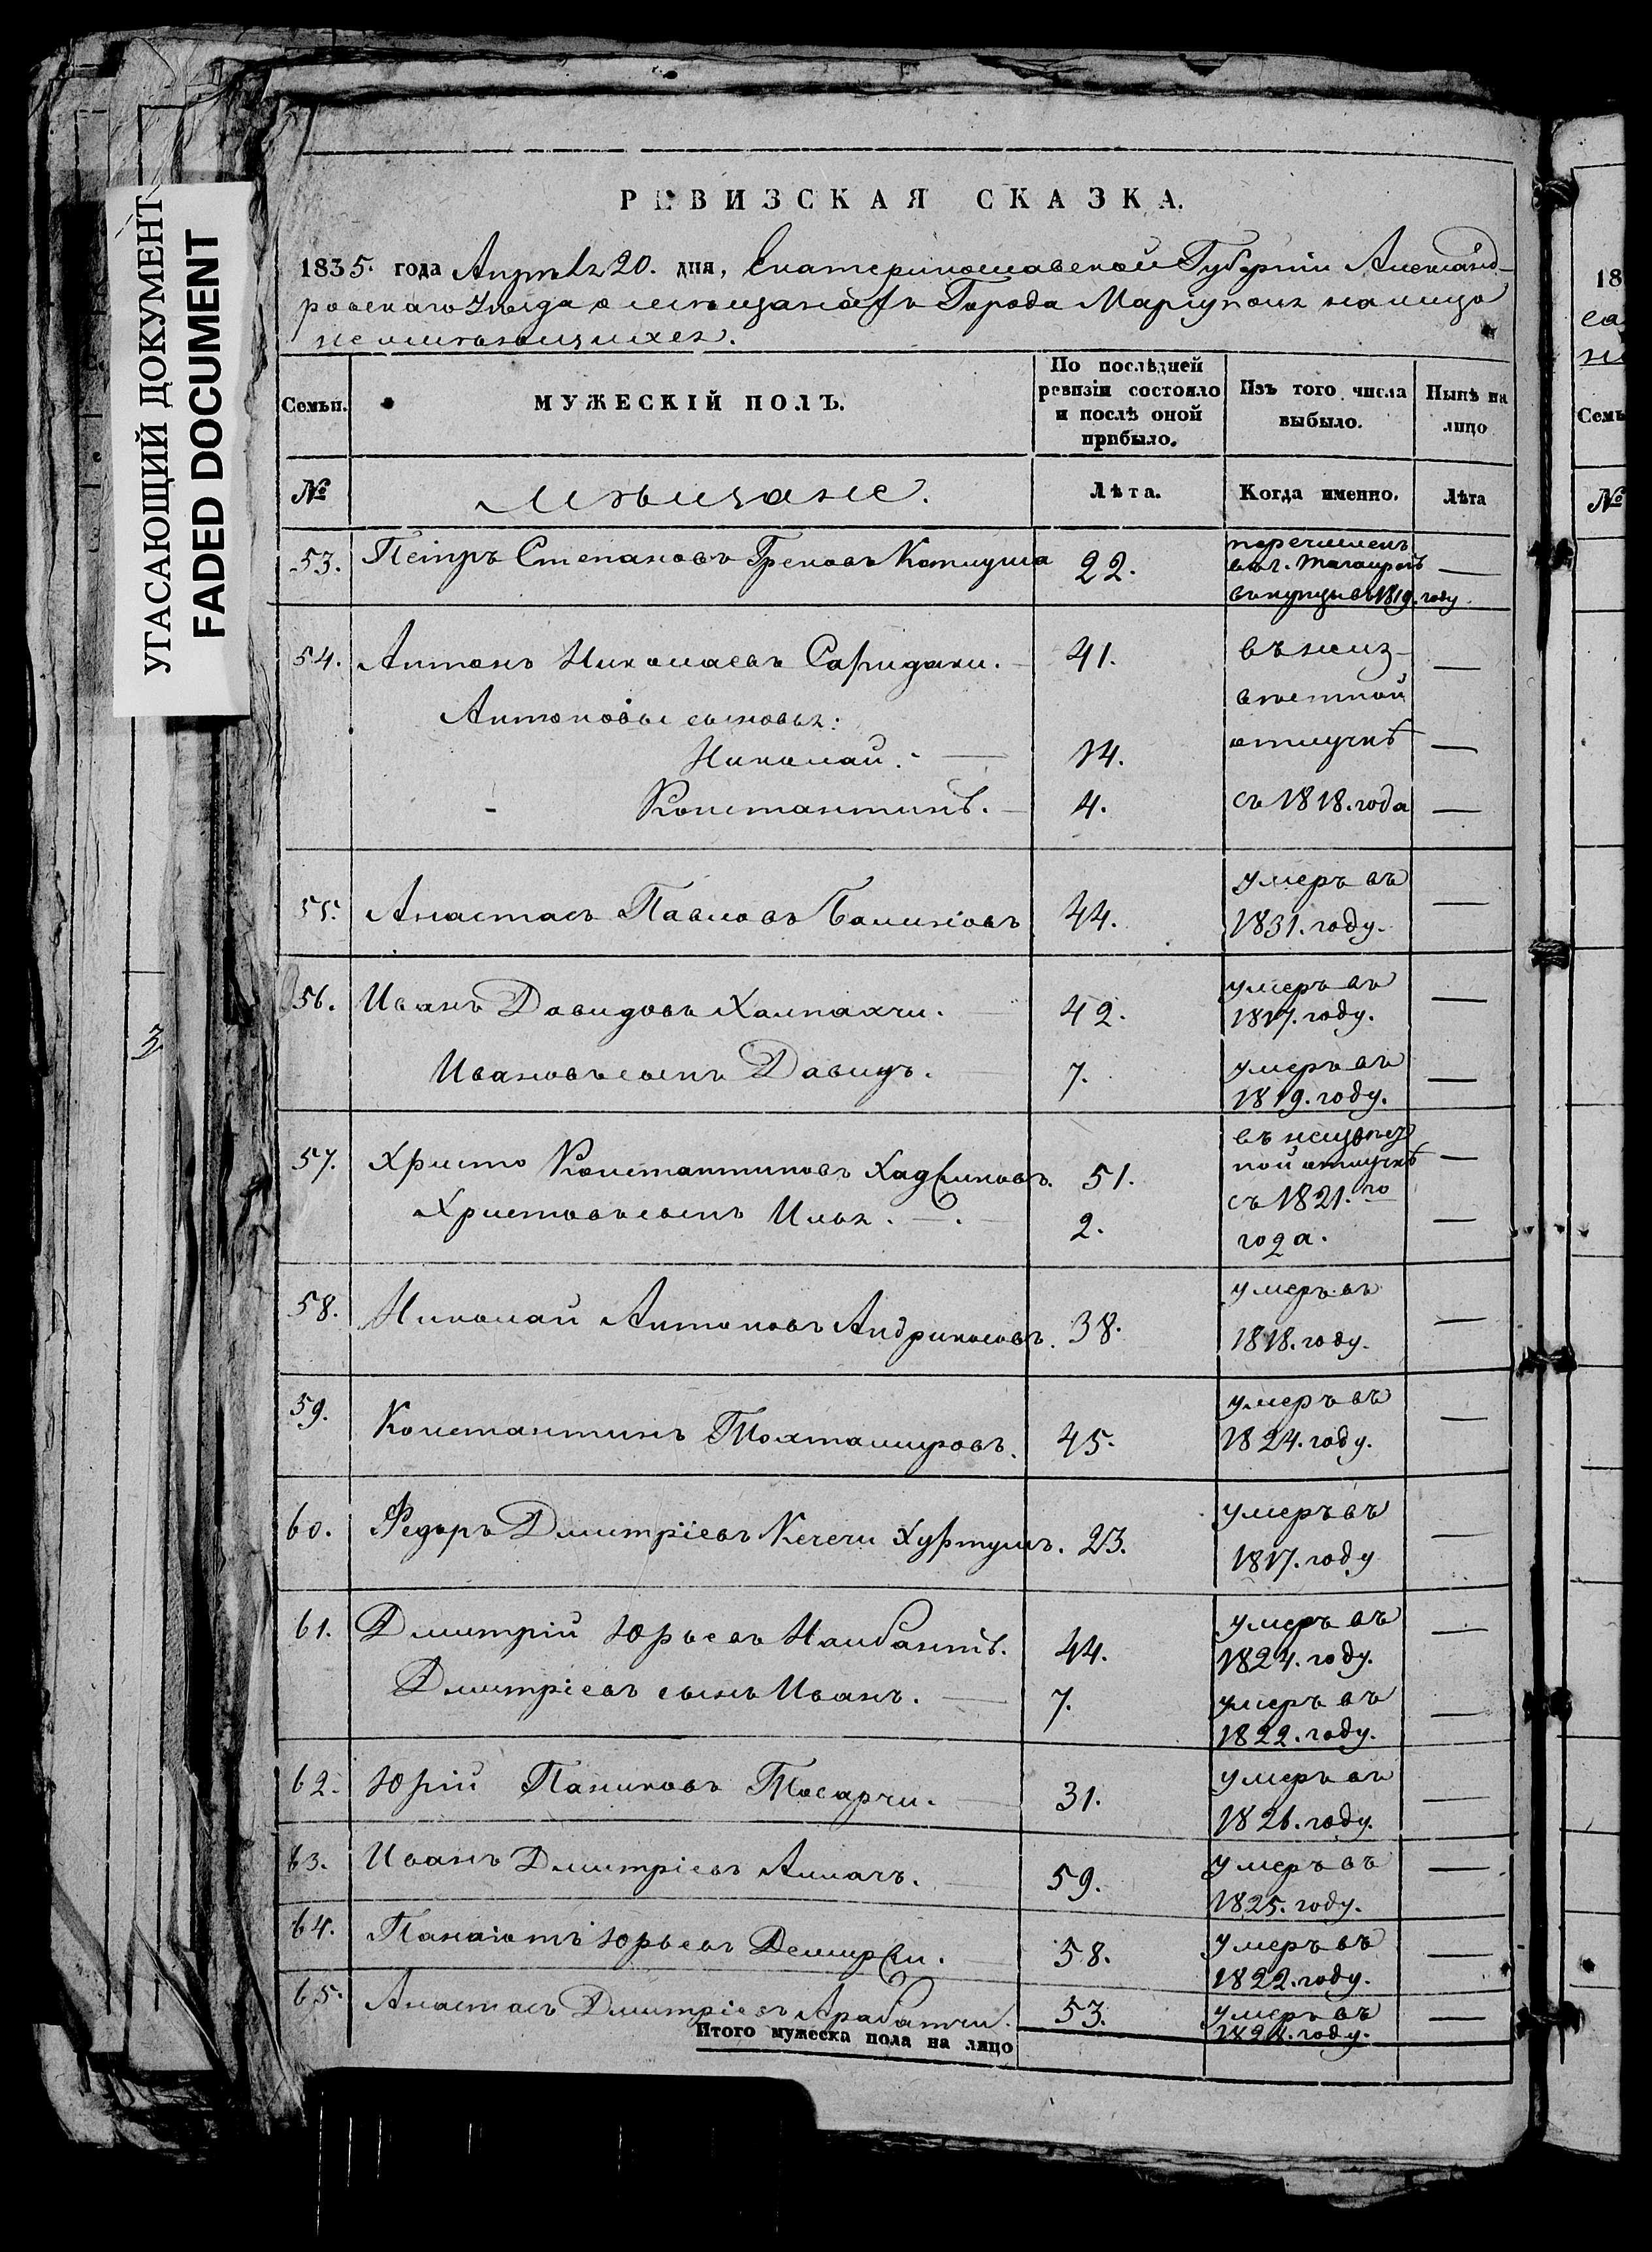 УГАСАЮЩИЙ ДОКУМЕНТ
FADED DOCUMENT
РЕВИЗСКАЯ СКАЗКА.
1835. года Апрѣля 20. дня, Екатеринославской Губерніи Александ-
ровскаго Уѣзда о мѣщанахъ Города Маріуполя на лицо
не имѣющихся.
Семьи. МУЖЕСКІЙ ПОЛЪ. По послѣдней ревизіи состояло и послѣ оной прибыло. Изъ того числа выбыло. Нынѣ на лицо
№ Мѣщане. Лѣта. Когда именно. Лѣта
53. Петръ Степановъ Грековъ Катуша 22. перечисленъ
въ г. Таганрогъ —
въ купцы въ 1819. году
54. Антонъ Николаевъ Саридаки. 41. въ неиз- —
Антоновы сыновья: вѣстной
Николай. — 14. отлучкѣ —
Константинъ. 4. съ 1818. года —
55. Анастасъ Павловъ 44. умеръ въ —
1831. году.
56. Иванъ Давидовъ Халпахчи. 42. умеръ въ —
1817. году.
Ивановъ сынъ Давидъ. 7. умеръ въ —
1819. году.
57. Христо Константиновъ Хаджиновъ. 51. въ
ной отлучкѣ —
Христовъ сынъ Илья. — 2. съ 1821.го —
года.
58. Николай Антоновъ 38. умеръ въ —
1818. году.
59. Константинъ Тохтамировъ. 45. умеръ въ —
1824. году.
60. Федоръ Дмитріевъ Кечечи 23. умеръ въ —
1817. году
61. Дмитрій Юрьевъ Налбантъ. 44. умеръ въ —
1824. году.
Дмитріевъ сынъ Иванъ. — 7. умеръ въ —
1822. году.
62. Юрій Тосарчи. 31. умеръ въ —
1826. году.
63. Иванъ Дмитріевъ 59. умеръ въ —
1825. году.
64. Панаіотъ Юрьевъ Демирджи. 58. умеръ въ —
1822. году.
65. Анастасъ Дмитріевъ Арабатчи. 53. умеръ въ —
году.
Итого мужеска пола на лицо
18
Семь
№